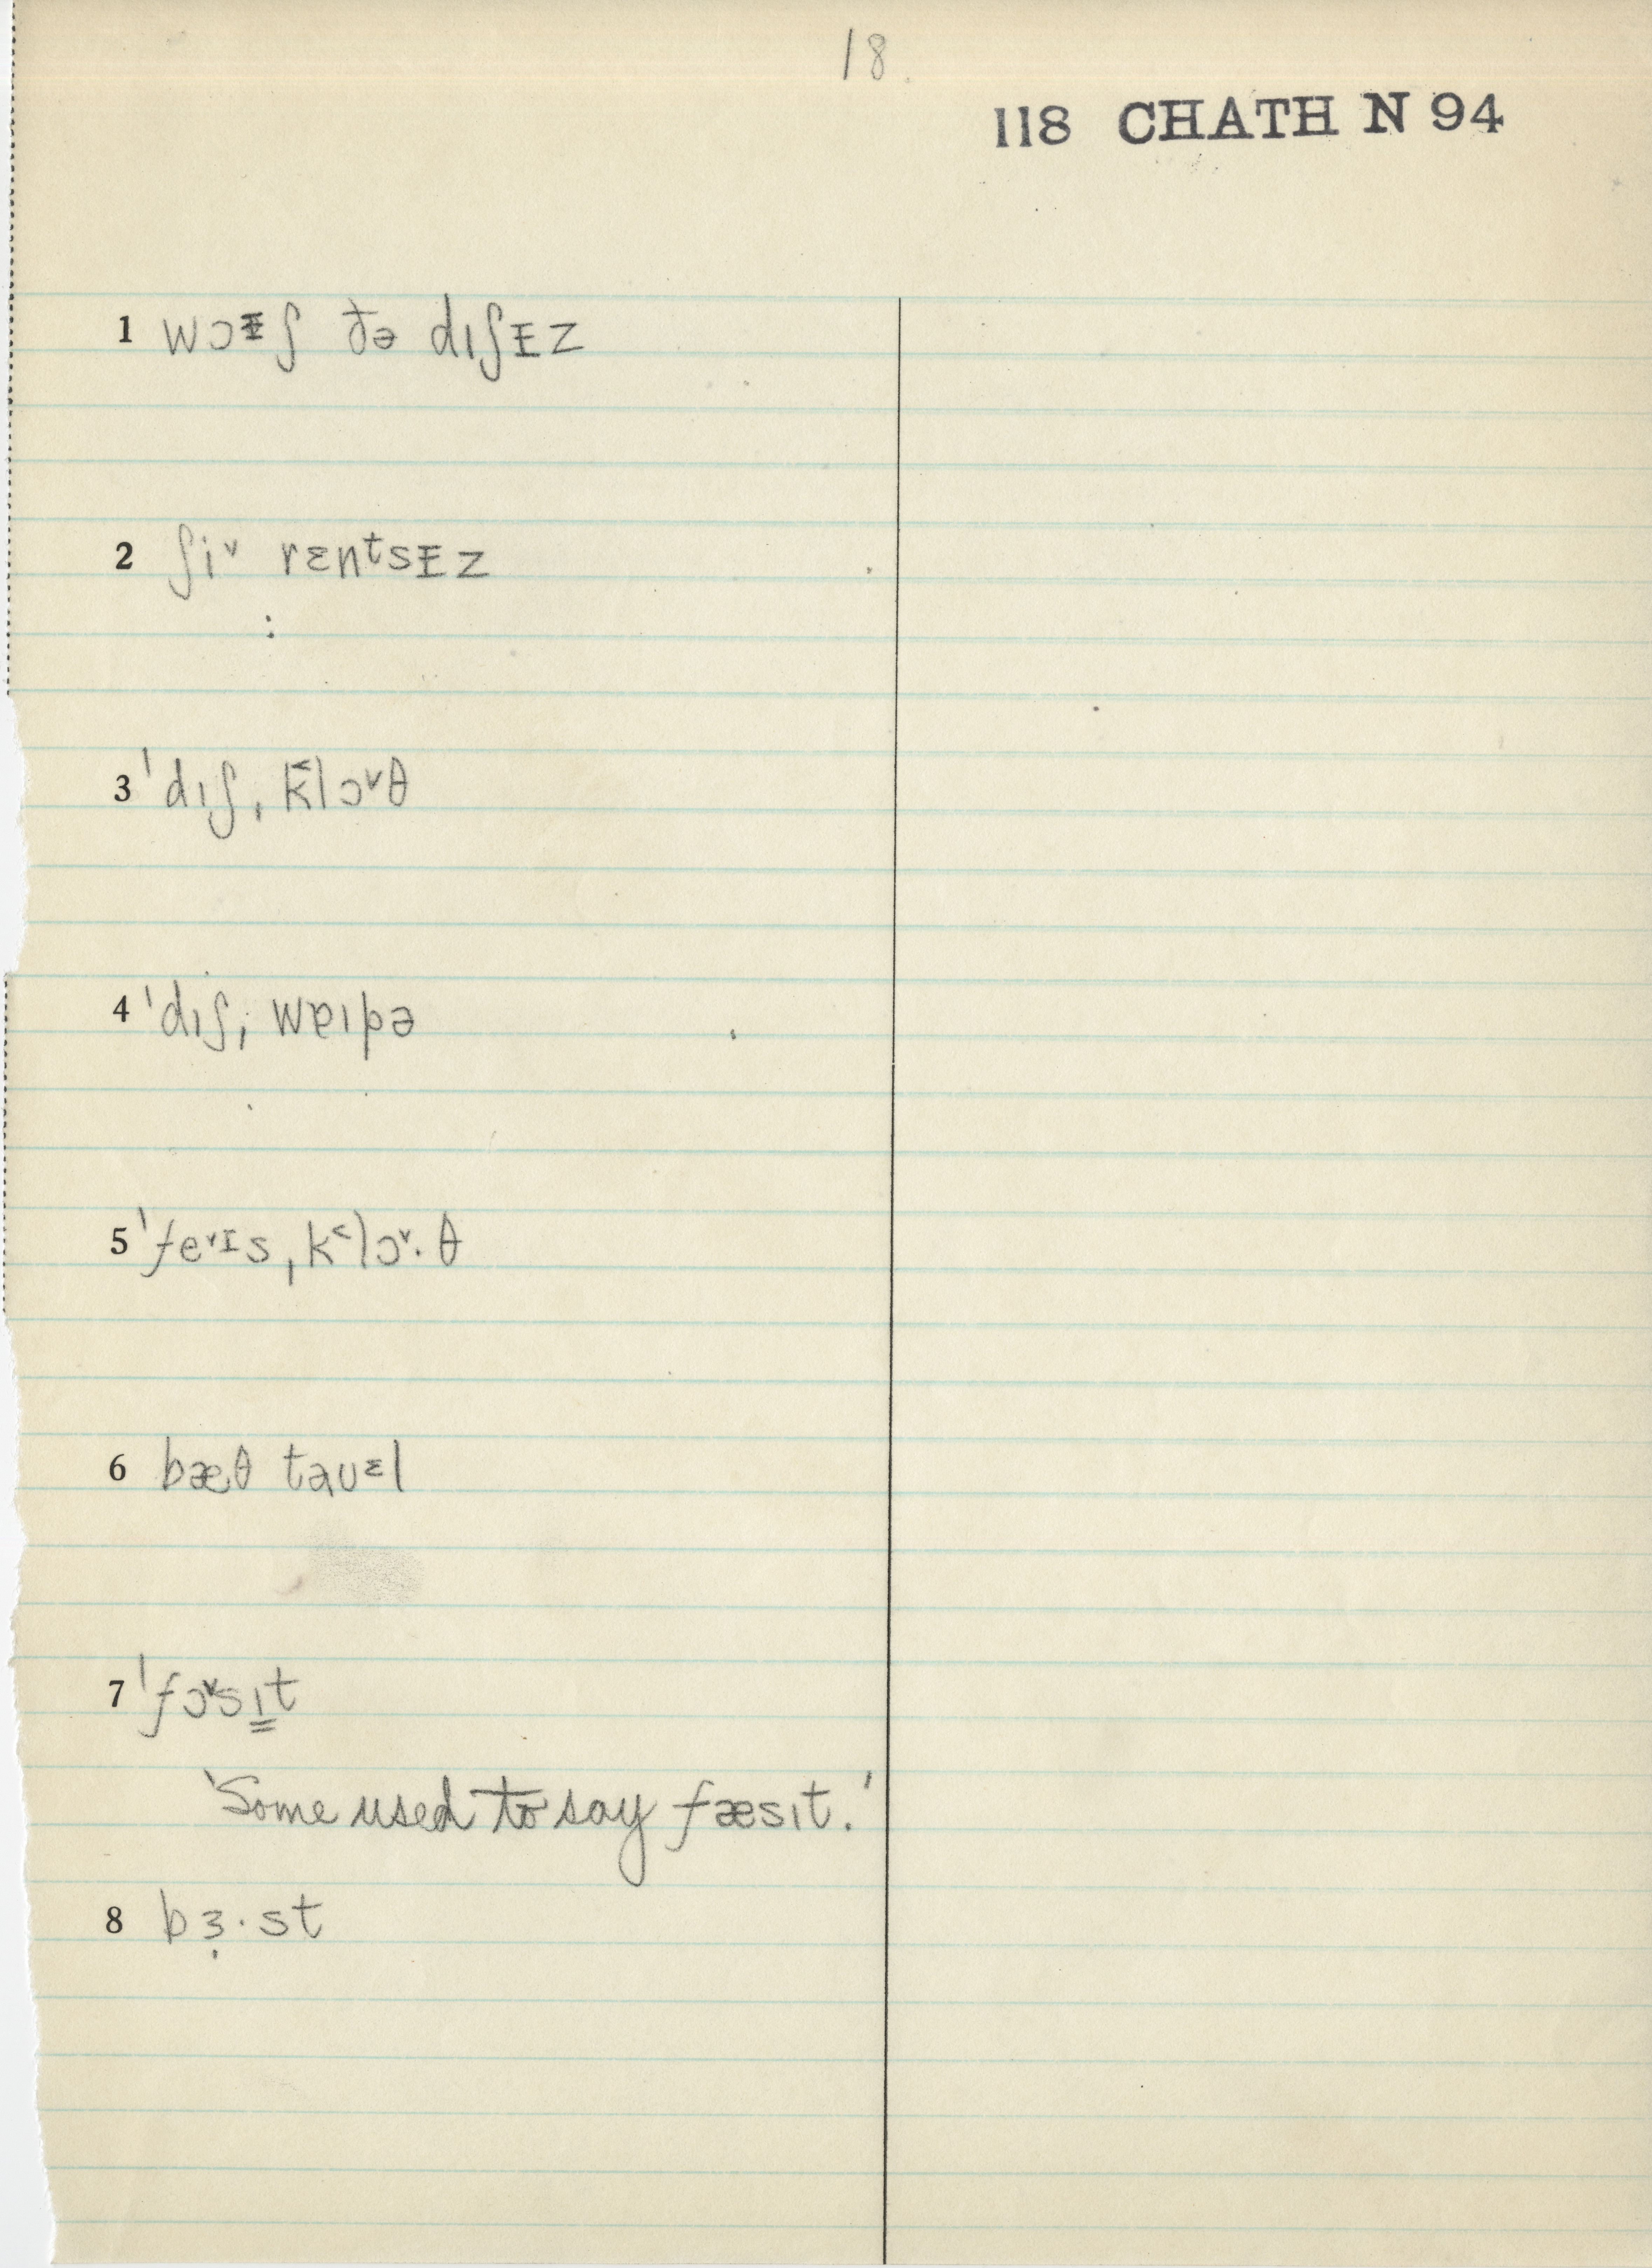 18.
118 CHATH N 94
1 wɔᵻʃ ðə dıʃᵻz
2 ʃiᵛ rɛnᵗsᵻz
3 ˈdıʃˌk˂lɔᵛθ
4 ˈdıʃˌwɐıpə
5 ˈfeᵛɪsˌk˂lɔᵛ·θ
6 bæθ taʊᵋl
7 ˈfɔᵛsı̳t
'Some used to say fæsıt.'
8 bɜ̣·st